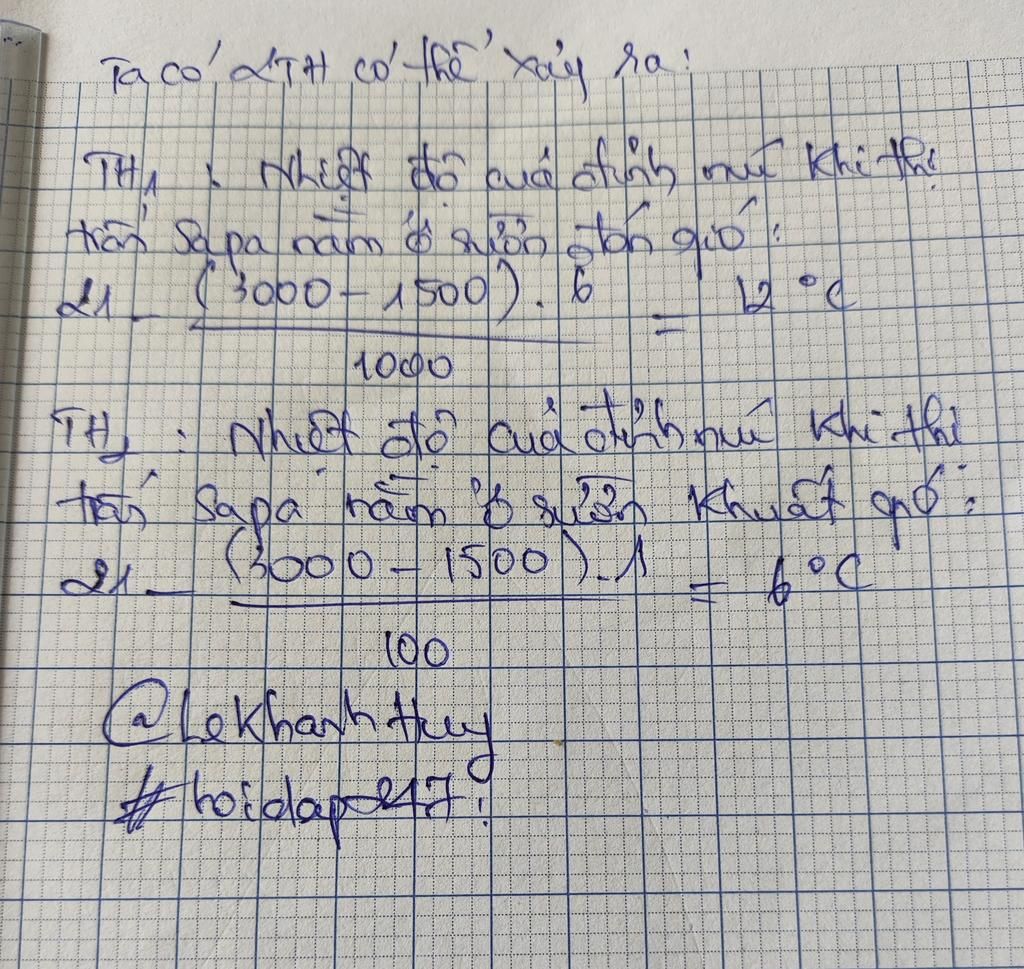 Ta có 2TH có thể xảy ra:
TH1: Nhiệt độ của đỉnh núi khi thị
trấn Sapa nằm ở sườn đón gió:
21 - (3000 - 1500) . 6 / 1000 = 12 °C
TH2: Nhiệt độ của đỉnh núi khi thị
trấn Sapa nằm ở sườn khuất gió:
21 - (3000 - 1500) . 1 / 100 = 6 °C
@LeKhanhHuy
#hoidap247!